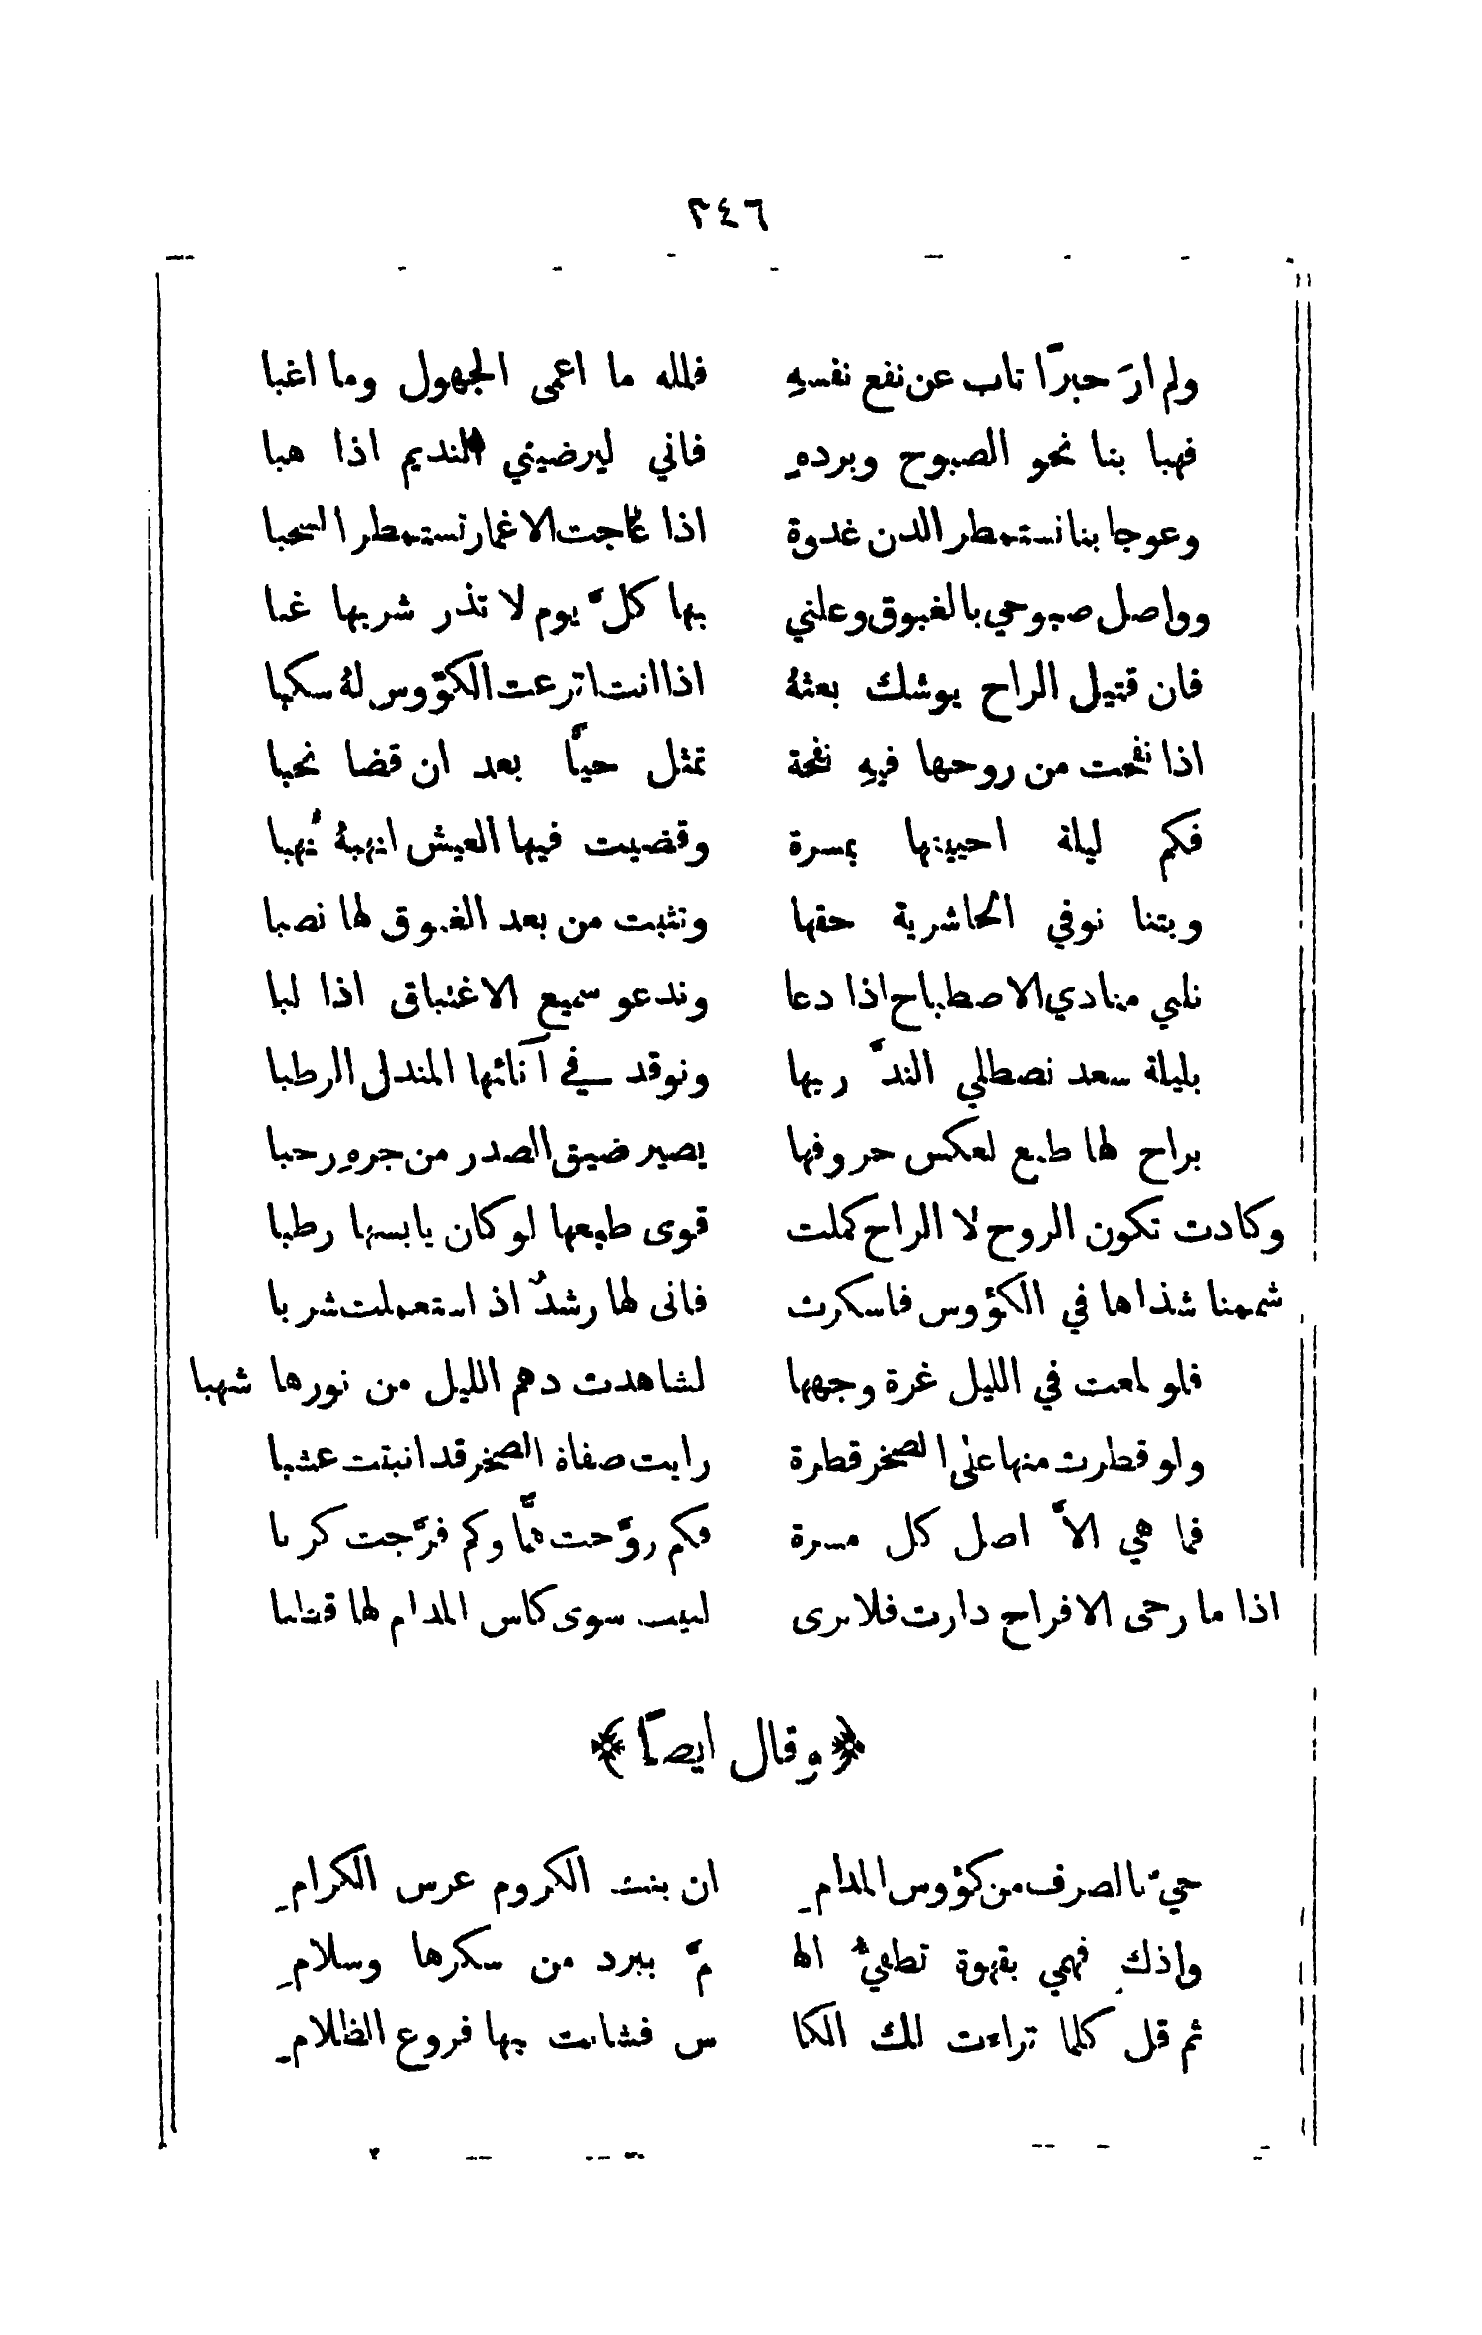 ٢٤٦
ولم ارَ حبرًا تاب عن نفع نفسهِ فلله ما اعمى الجهول وما اغبا
فهبا بنا نحو الصبوح وبردهِ فاني ليرضيني النديم اذا هبا
وعوجا بنا نستمطر الدن غدوة اذا عاجت الاغمار تستمطر السحبا
وواصل صبوحي بالغبوق وعلني بها كلَّ يوم لا تذر شربها غبا
فان قتيل الراح يوشك بعثهُ اذا انت اترعت الكؤوس لهُ سكبا
اذا نفحت من روحها فيهِ نفحة تمثل حيًّا بعد ان قضا نحبا
فكم ليلة احييتها بمسرة وقضيت فيها العيش انهبهُ نُهبا
وبتنا نوفي الحاشرية حقها ونثبت من بعد الغبوق لها نصبا
نلبي منادي الاصطباح اذا دعا وندعو سميع الاغتباق اذا لبا
بليلة سعد نصطلي الندَّ ريها ونوقد في آنائها المندلى الرطبا
براح لها طبع لعكس حروفها يصير ضيق الصدر من جرهِ رحبا
وكادت تكون الروح لا الراح كملت قوى طبعها لو كان يابسها رطبا
شممنا شذاها في الكؤوس فاسكرت فانى لها رشدٌ اذ استعملت شربا
فلو لمعت في الليل غرة وجهها لشاهدت دهم الليل من نورها شهبا
ولو قطرت منها على الصخر قطرة رايت صفاة الصخر قد انبتت عشبا
فما هي الاَّ اصل كل مسرة فكم روَّحت همًّا وكم فرَّجت كربا
اذا ما رحى الافراح دارت فلا يرى لبيب سوى كاس المدام لها قطبا
﴿وقال ايضًا﴾
حيِّ بالصرف من كؤوس المدامِ ان بنت الكروم عرس الكرامِ
واذكِ فهمي بقهوة تطفيُّ اله مَّ ببرد من سكرها وسلامِ
ثم قل كلما تراءت لك الكا س فشابت بها فروع الظلامِ